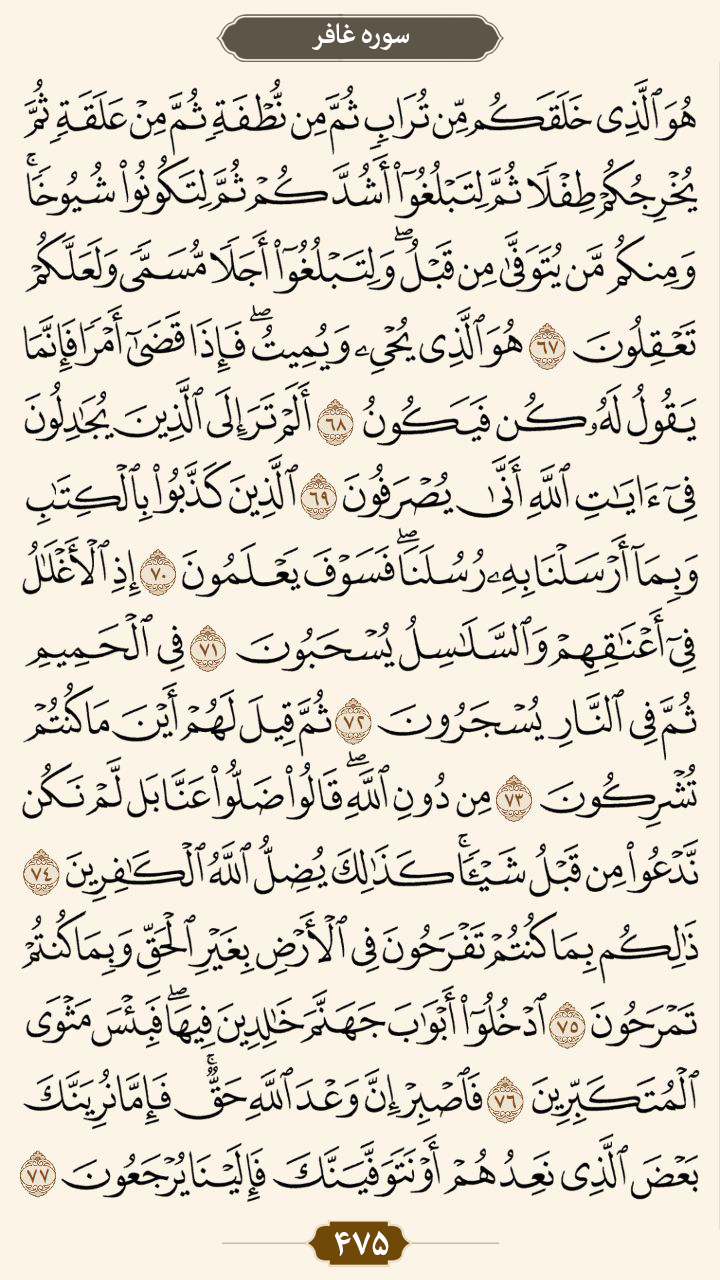 سوره غافر
هُوَ ٱلَّذِى خَلَقَكُم مِّن تُرَابٍ ثُمَّ مِن نُّطْفَةٍ ثُمَّ مِنْ عَلَقَةٍ ثُمَّ
يُخْرِجُكُمْ طِفْلًا ثُمَّ لِتَبْلُغُوٓا۟ أَشُدَّكُمْ ثُمَّ لِتَكُونُوا۟ شُيُوخًا ۚ
وَمِنكُم مَّن يُتَوَفَّىٰ مِن قَبْلُ ۖ وَلِتَبْلُغُوٓا۟ أَجَلًا مُّسَمًّى وَلَعَلَّكُمْ
تَعْقِلُونَ ۶۷ هُوَ ٱلَّذِى يُحْىِۦ وَيُمِيتُ ۖ فَإِذَا قَضَىٰٓ أَمْرًا فَإِنَّمَا
يَقُولُ لَهُۥ كُن فَيَكُونُ ۶۸ أَلَمْ تَرَ إِلَى ٱلَّذِينَ يُجَٰدِلُونَ
فِىٓ ءَايَٰتِ ٱللَّهِ أَنَّىٰ يُصْرَفُونَ ۶۹ ٱلَّذِينَ كَذَّبُوا۟ بِٱلْكِتَٰبِ
وَبِمَآ أَرْسَلْنَا بِهِۦ رُسُلَنَا ۖ فَسَوْفَ يَعْلَمُونَ ۷۰ إِذِ ٱلْأَغْلَٰلُ
فِىٓ أَعْنَٰقِهِمْ وَٱلسَّلَٰسِلُ يُسْحَبُونَ ۷۱ فِى ٱلْحَمِيمِ
ثُمَّ فِى ٱلنَّارِ يُسْجَرُونَ ۷۲ ثُمَّ قِيلَ لَهُمْ أَيْنَ مَا كُنتُمْ
تُشْرِكُونَ ۷۳ مِن دُونِ ٱللَّهِ ۖ قَالُوا۟ ضَلُّوا۟ عَنَّا بَل لَّمْ نَكُن
نَّدْعُوا۟ مِن قَبْلُ شَيْـًٔا ۚ كَذَٰلِكَ يُضِلُّ ٱللَّهُ ٱلْكَٰفِرِينَ ۷۴
ذَٰلِكُم بِمَا كُنتُمْ تَفْرَحُونَ فِى ٱلْأَرْضِ بِغَيْرِ ٱلْحَقِّ وَبِمَا كُنتُمْ
تَمْرَحُونَ ۷۵ ٱدْخُلُوٓا۟ أَبْوَٰبَ جَهَنَّمَ خَٰلِدِينَ فِيهَا ۖ فَبِئْسَ مَثْوَى
ٱلْمُتَكَبِّرِينَ ۷۶ فَٱصْبِرْ إِنَّ وَعْدَ ٱللَّهِ حَقٌّ ۚ فَإِمَّا نُرِيَنَّكَ
بَعْضَ ٱلَّذِى نَعِدُهُمْ أَوْ نَتَوَفَّيَنَّكَ فَإِلَيْنَا يُرْجَعُونَ ۷۷
۴۷۵